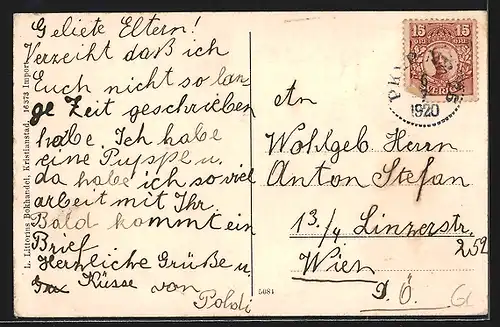 Geliete Eltern!
Verzeiht daß ich
Euch nicht so lan-
ge Zeit geschrieben
habe. Ich habe
eine Puppe u.
da habe ich so viel
arbeit mit Ihr.
Bald kommt ein
Brief
Herzliche Grüße u
Küsse von
Poldi
L. Littorins Bokhandel, Kristianstad. 16373 Import
5684
15 15
SVERIGE
PKXP
1920
An
Wohlgeb Herrn
Anton Stefan
13./4 Linzerstr.
252
Wien
D. Ö.